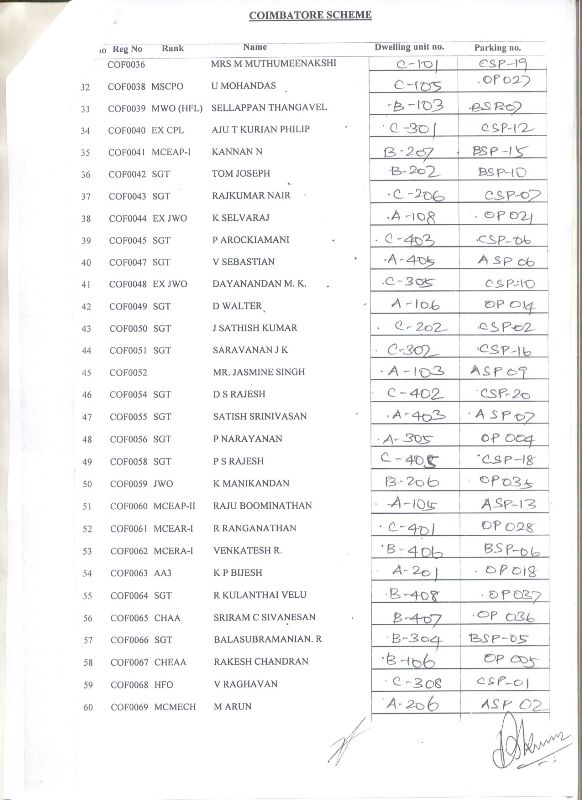 COIMBATORE SCHEME
No Reg No Rank Name Dwelling unit no. Parking no.
COF0036 MRS M MUTHUMEENAKSHI C-101 CSP-19
32 COF0038 MSCPO U MOHANDAS C-105 OP027
33 COF0039 MWO (HFL) SELLAPPAN THANGAVEL B-103 BSP07
34 COF0040 EX CPL AJU T KURIAN PHILIP C-301 CSP-12
35 COF0041 MCEAP-I KANNAN N B-207 BSP-15
36 COF0042 SGT TOM JOSEPH B-202 BSP-10
37 COF0043 SGT RAJKUMAR NAIR C-206 CSP-07
38 COF0044 EX JWO K SELVARAJ A-108 OP021
39 COF0045 SGT P AROCKIAMANI C-403 CSP-06
40 COF0047 SGT V SEBASTIAN A-405 ASP06
41 COF0048 EX JWO DAYANANDAN M. K. C-305 CSP-10
42 COF0049 SGT D WALTER A-106 OP014
43 COF0050 SGT J SATHISH KUMAR C-202 CSP-02
44 COF0051 SGT SARAVANAN J K C-302 CSP-16
45 COF0052 MR. JASMINE SINGH A-103 ASP09
46 COF0054 SGT D S RAJESH C-402 CSP-20
47 COF0055 SGT SATISH SRINIVASAN A-403 ASP07
48 COF0056 SGT P NARAYANAN A-305 OP004
49 COF0058 SGT P S RAJESH C-405 CSP-18
50 COF0059 JWO K MANIKANDAN B-206 OP035
51 COF0060 MCEAP-II RAJU BOOMINATHAN A-105 ASP-13
52 COF0061 MCEAR-I R RANGANATHAN C-401 OP028
53 COF0062 MCERA-I VENKATESH R. B-406 BSP-06
54 COF0063 AA3 K P BIJESH A-201 OP018
55 COF0064 SGT R KULANTHAI VELU B-408 OP037
56 COF0065 CHAA SRIRAM C SIVANESAN B-407 OP 036
57 COF0066 SGT BALASUBRAMANIAN. R B-304 BSP-05
58 COF0067 CHEAA RAKESH CHANDRAN B-106 OP005
59 COF0068 HFO V RAGHAVAN C-308 CSP-01
60 COF0069 MCMECH M ARUN A-206 ASP 02